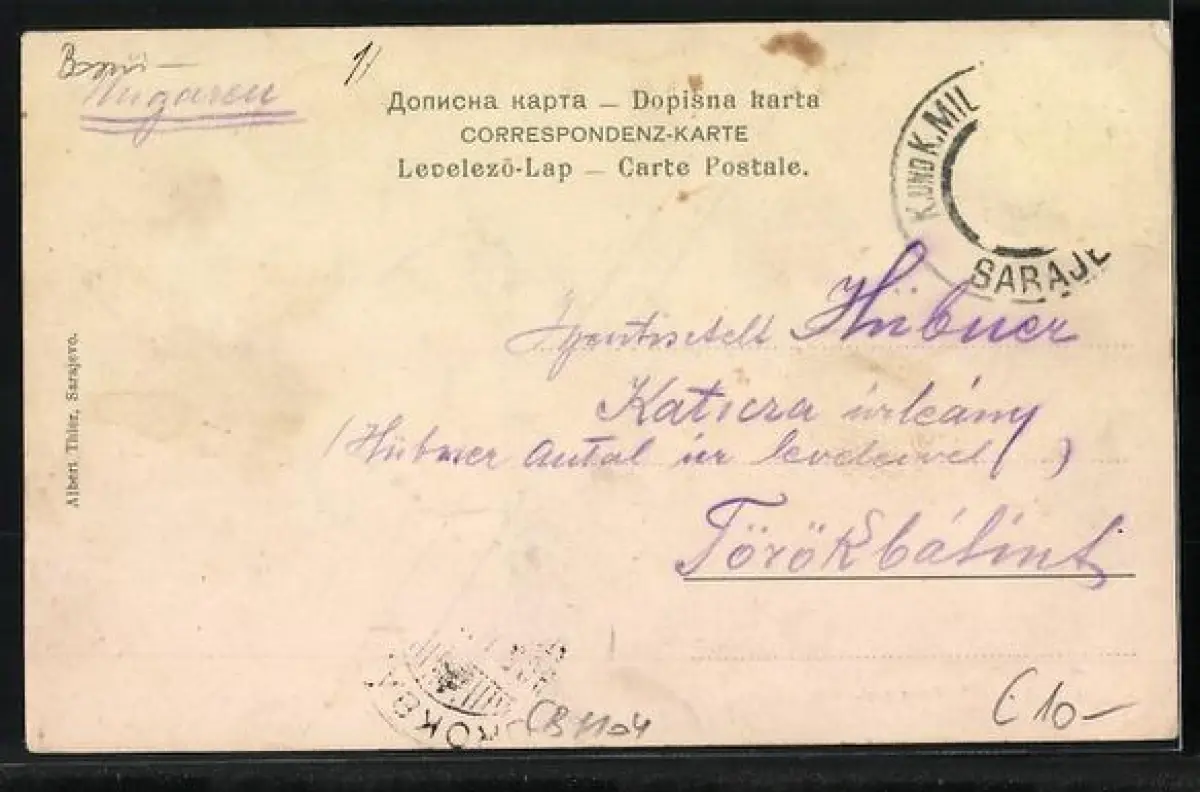 1)
Ungarn
Дописна карта — Dopisna karta
CORRESPONDENZ-KARTE
Levelező-Lap — Carte Postale.
K. UND K. MIL
SARAJE
Hübner
Katicza úrleány
(Hübner Antal úr levelével)
Törökbálint
Albert Thier, Sarajevo.
ÖKBÁ
CB 1104
€ 10—